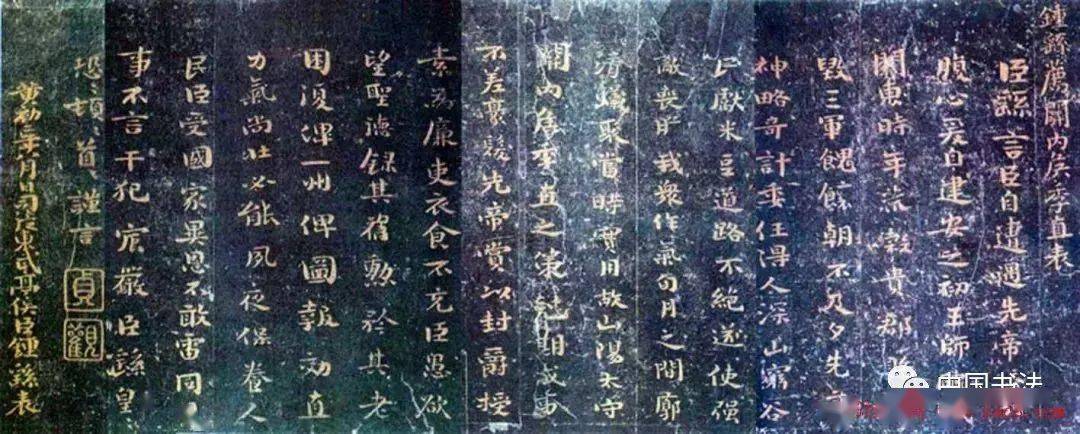 鍾繇薦關內侯季直表
臣繇言臣自遭遇先帝
腹心爰自建安之初王師
關東時年荒穀貴郡縣
毀三軍餽饟朝不及夕先帝
神略奇計委任得人深山窮谷
民獻米豆道路不絕遂使强
敵喪膽我衆作氣旬月之間廓
清蟻聚當時實用故山陽太守
關內侯季直之策尅期成事
不差豪髮先帝賞以封爵授
素為廉吏衣食不充臣愚欲
望聖德錄其舊勳矜其老
困復俾一州俾圖報効直
力氣尚壯必能夙夜保養人
民臣受國家異恩不敢雷同
事不言干犯宸嚴臣繇皇
恐〻頓〻首〻謹言
貞觀
黃初二年八月日司徒東武亭侯臣鍾繇表
中国书法